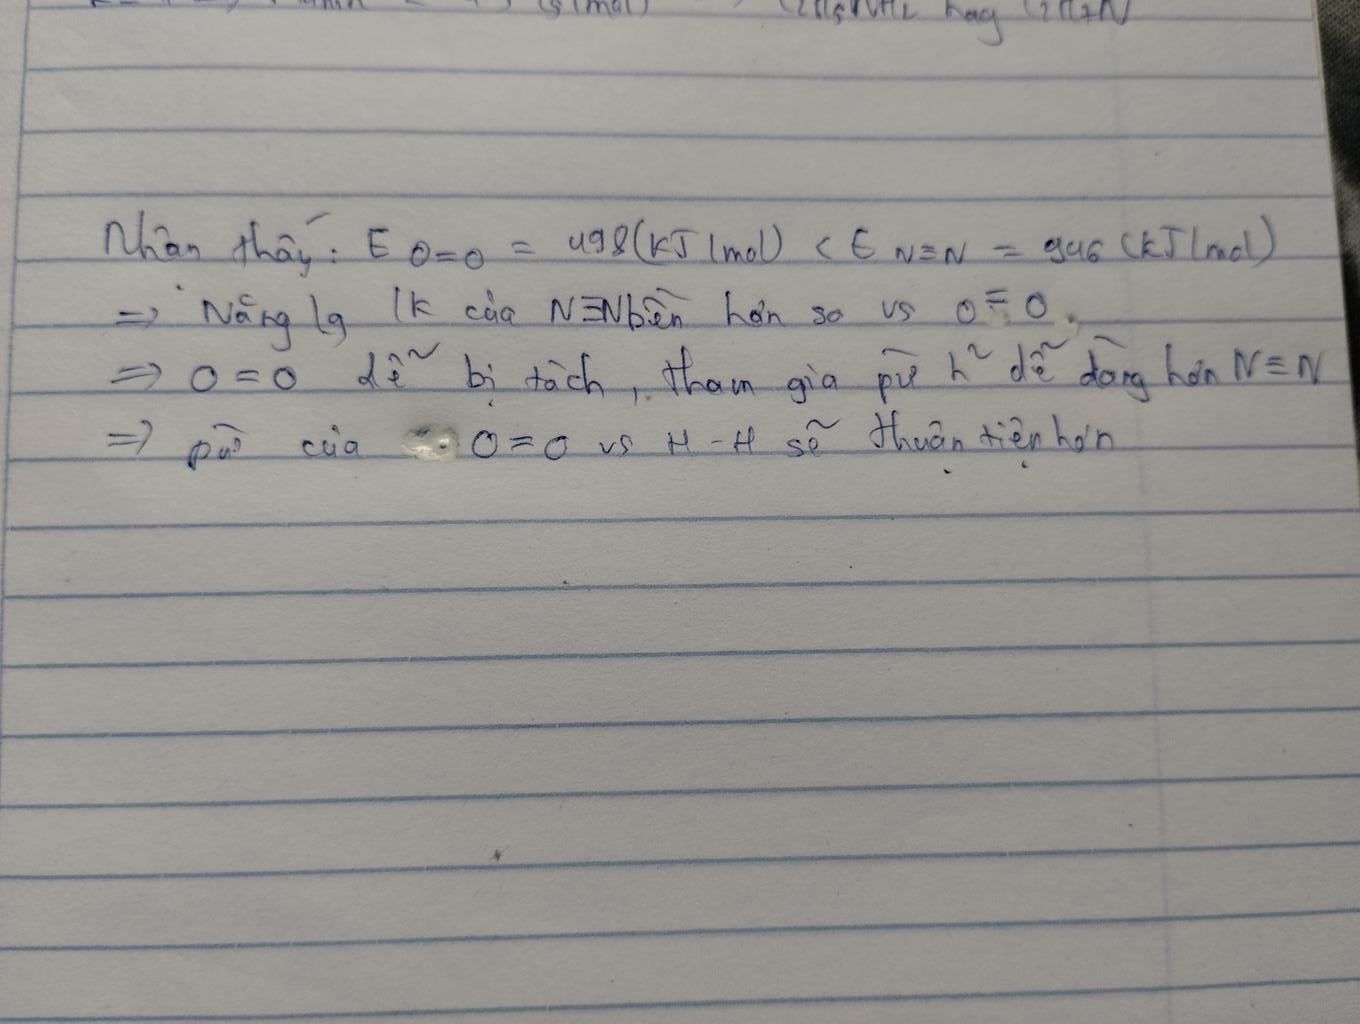 (g/mol) C2H5NH2 hay C2H7N
Nhận thấy: E O=O = 498 (kJ/mol) < E N≡N = 946 (kJ/mol)
=> Năng lg lk của N≡N bền hơn so vs O=O.
=> O=O dễ bị tách, tham gia pứ h² dễ dàng hơn N≡N
=> pứ của O=O vs H-H sẽ thuận tiện hơn